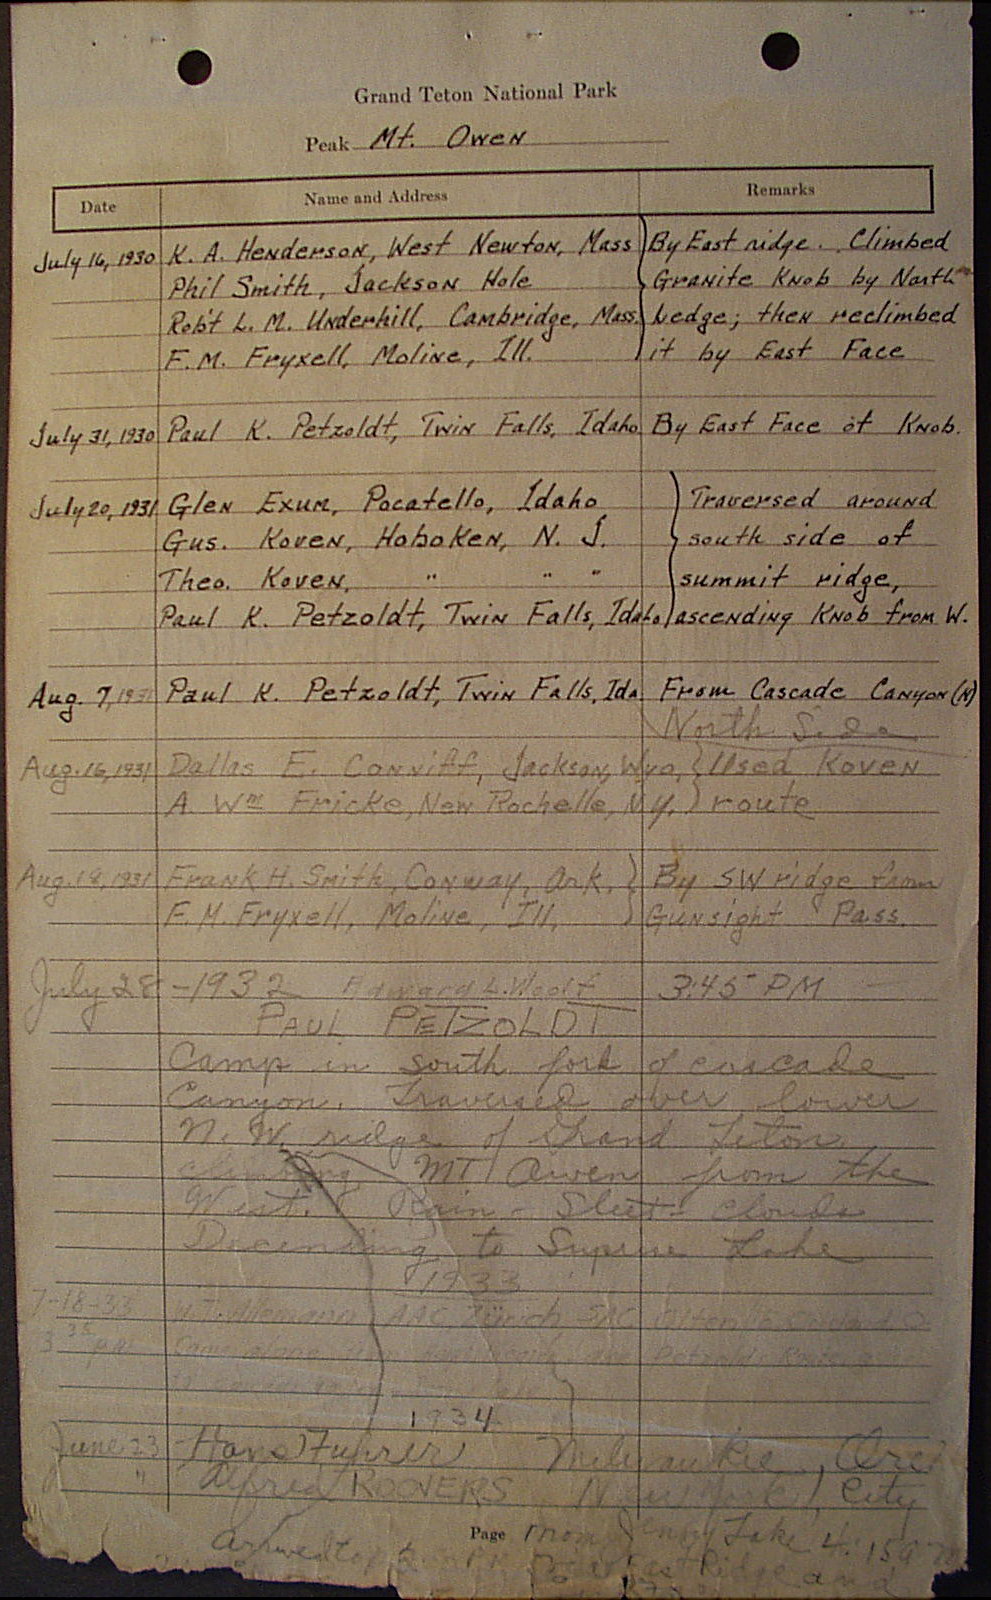 Grand Teton National Park
Peak Mt. Owen
Date Name and Address Remarks
July 16, 1930 K. A. Henderson, West Newton, Mass By East ridge. Climbed
Phil Smith, Jackson Hole Granite Knob by North
Rob't L. M. Underhill, Cambridge, Mass. Ledge; then reclimbed
F. M. Fryxell, Moline, Ill. it by East Face
July 31, 1930 Paul K. Petzoldt, Twin Falls, Idaho By East Face of Knob.
July 20, 1931 Glen Exum, Pocatello, Idaho Traversed around
Gus. Koven, Hoboken, N. J. south side of
Theo. Koven, " " " summit ridge,
Paul K. Petzoldt, Twin Falls, Idaho ascending Knob from W.
Aug. 7, 1931 Paul K. Petzoldt, Twin Falls, Ida. From Cascade Canyon (N)
North Side
Aug. 16, 1931 Dallas E. Conniff, Jackson, Wyo, Used Koven
A. Wm Fricke, New Rochelle, N.Y. route
Aug. 18, 1931 Frank H. Smith, Conway, Ark. By SW ridge from
F. M. Fryxell, Moline, Ill. Gunsight Pass.
July 28 - 1932 Edward L. Woolf 3:45 PM
PAUL PETZOLDT
Camp in south fork of cascade
Canyon. Traversed over lower
N. W. ridge of Grand Teton.
climbing MT Owen from the
West. Rain - Sleet - clouds
Decending to Supreme Lake
1933
7-18-33 Allemann AAC, Zürich SAC
3 35 p.m. Came alone
1934
June 23 Hans Fuhrer Milwaukie, Ore
" Alfred ROOVERS New York City
Page From Jenny Lake 4.15
Arrived top East Ridge and